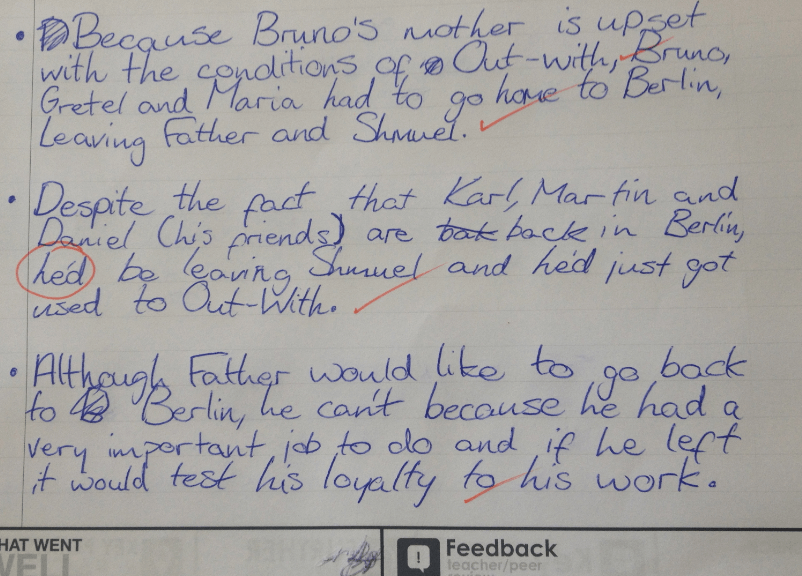 • Because Bruno's mother is upset
with the conditions of Out-with, Bruno,
Gretel and Maria had to go home to Berlin,
Leaving Father and Shmuel.
• Despite the fact that Karl, Martin and
Daniel (his friends) are bak back in Berlin,
he'd be leaving Shmuel and he'd just got
used to Out-With.
• Although Father would like to go back
to Berlin, he can't because he had a
very important job to do and if he left
it would test his loyalty to his work.
HAT WENT
WELL
Feedback
teacher/peer
review